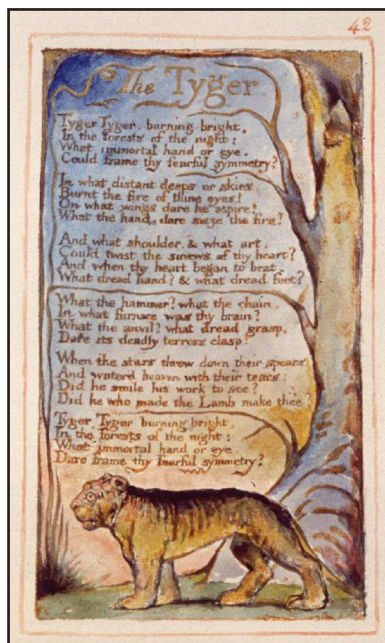 42
The Tyger
Tyger Tyger, burning bright,
In the forests of the night;
What immortal hand or eye,
Could frame thy fearful symmetry?
In what distant deeps or skies,
Burnt the fire of thine eyes!
On what wings dare he aspire!
What the hand, dare sieze the fire?
And what shoulder, & what art,
Could twist the sinews of thy heart?
And when thy heart began to beat,
What dread hand? & what dread feet?
What the hammer? what the chain,
In what furnace was thy brain?
What the anvil? what dread grasp,
Dare its deadly terrors clasp!
When the stars threw down their spears
And water'd heaven with their tears:
Did he smile his work to see?
Did he who made the Lamb make thee?
Tyger, Tyger burning bright,
In the forests of the night:
What immortal hand or eye,
Dare frame thy fearful symmetry?